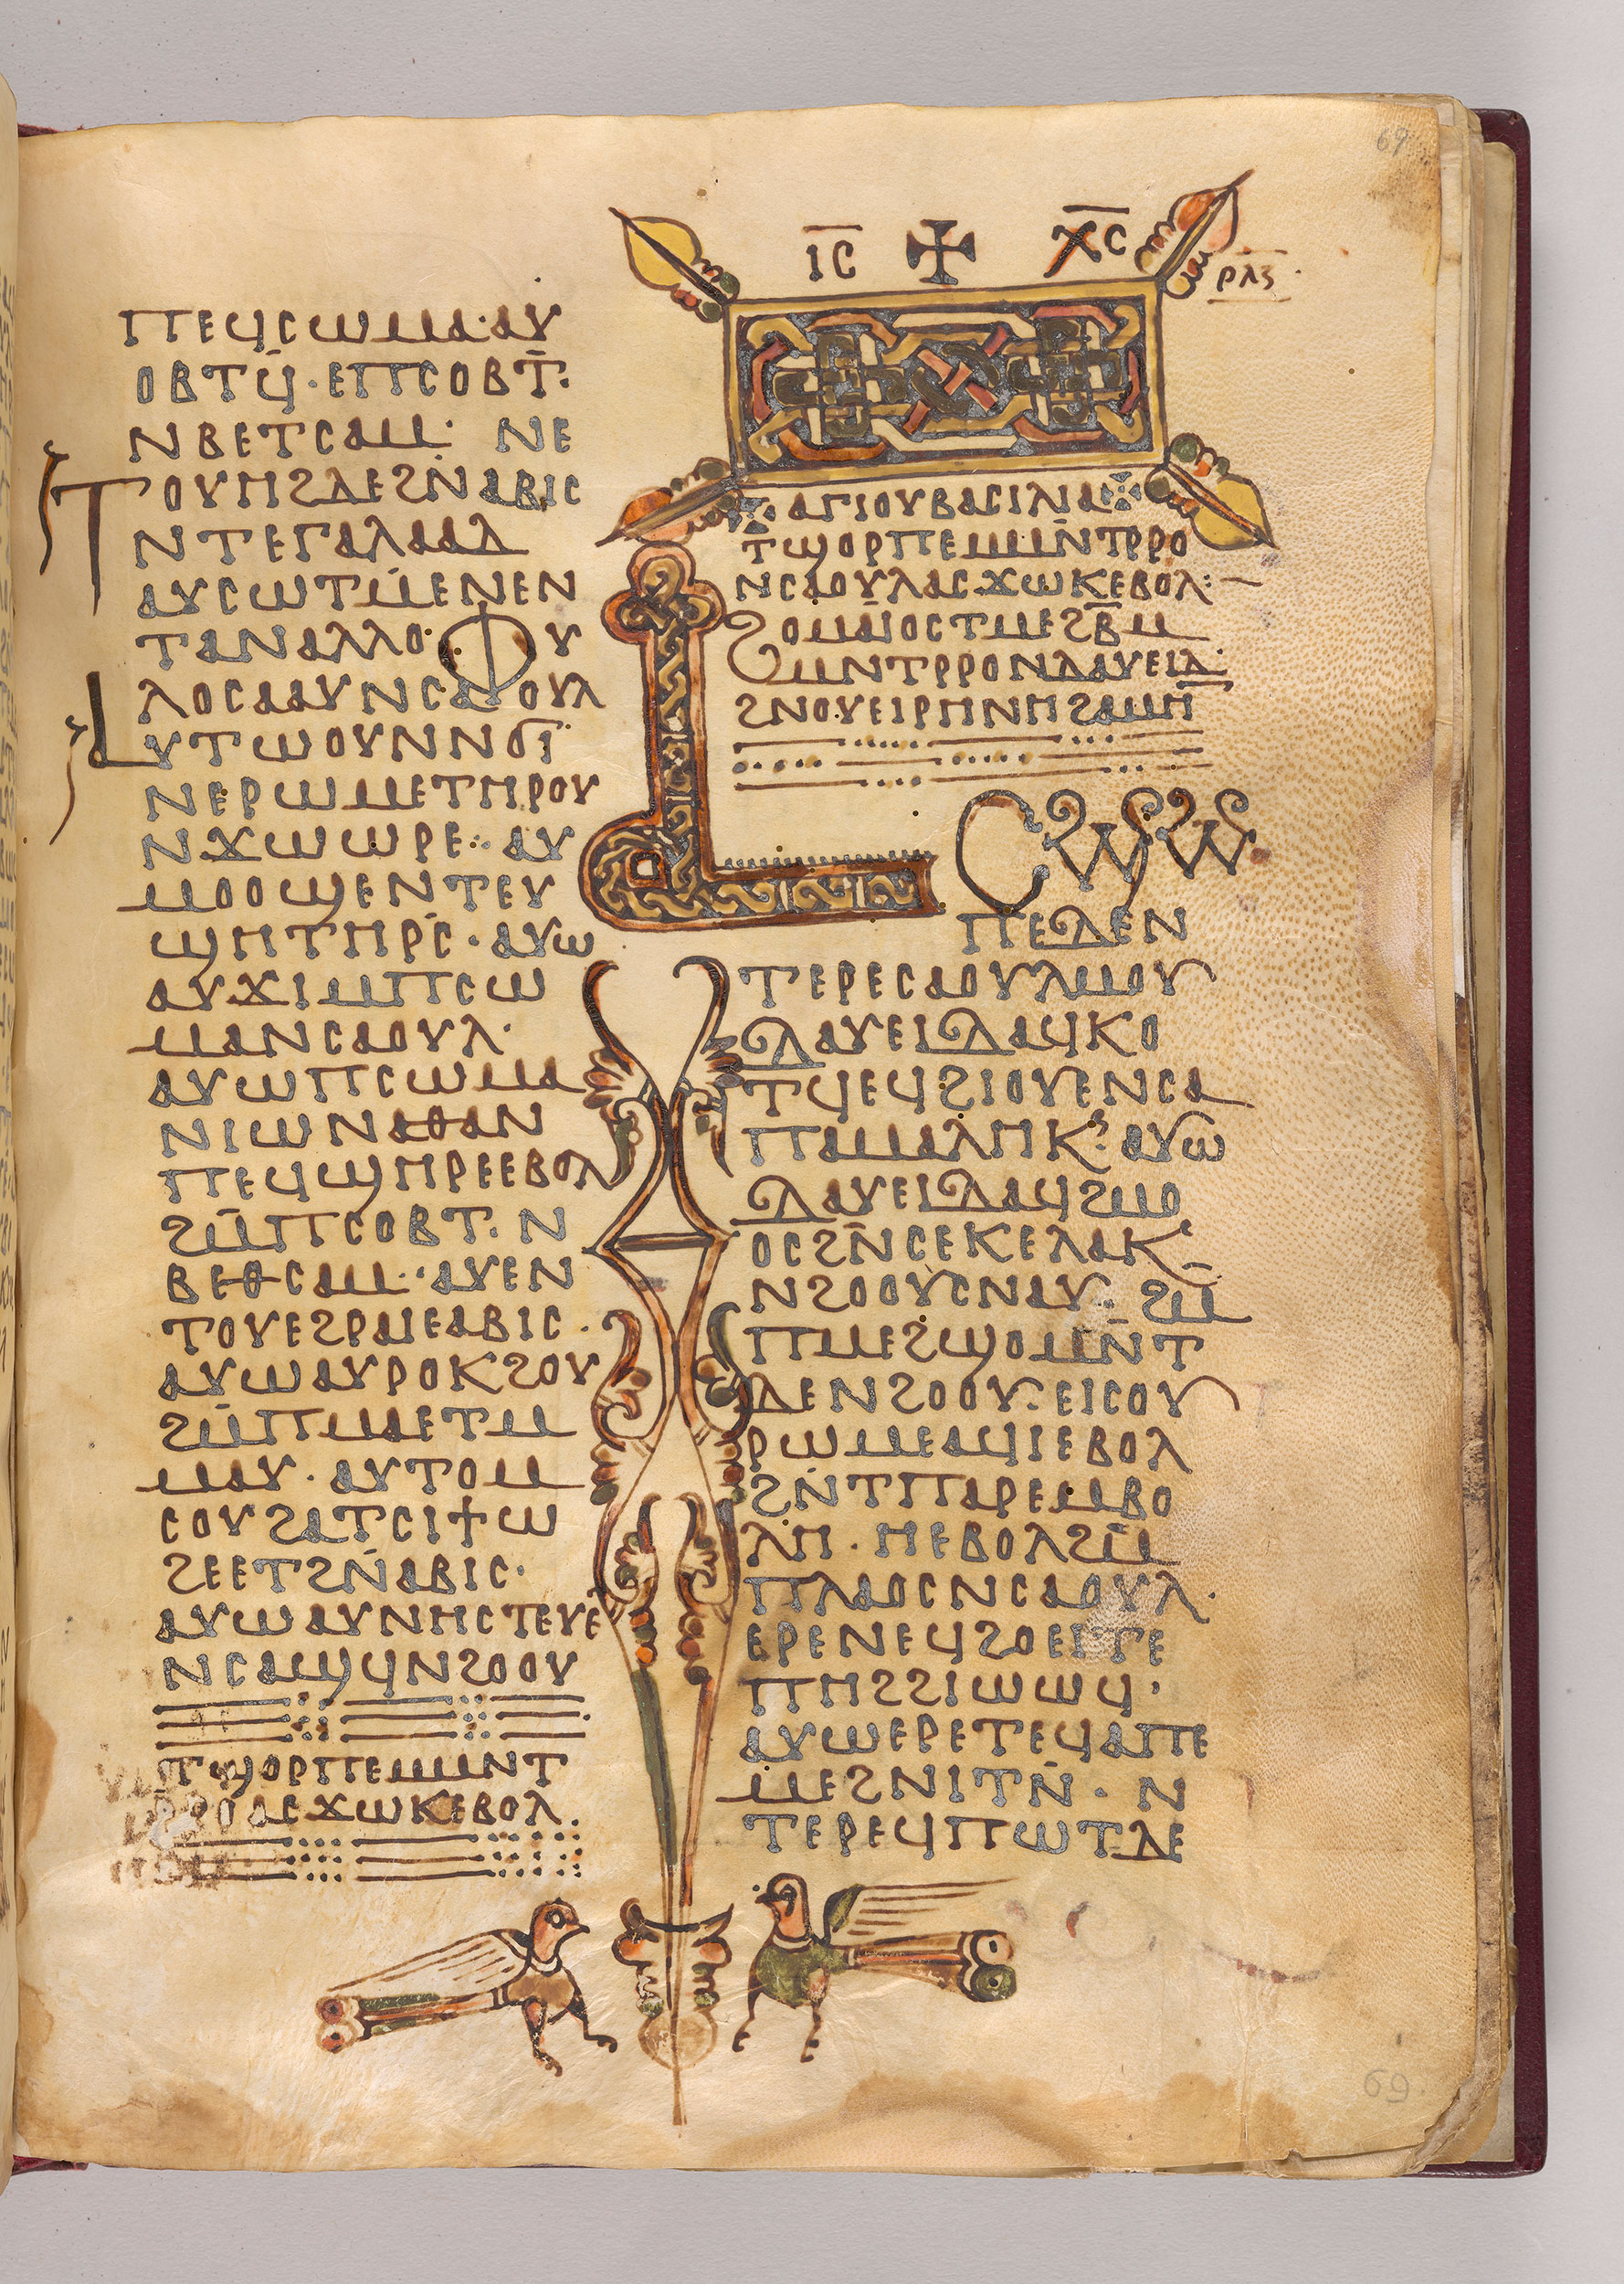 69
ⲓ̅ⲥ̅ ✝ ⲭ̅ⲥ̅
ⲣⲗⲋ
ⲡⲉϥⲥⲱⲙⲁ·ⲁⲩ
ⲟⲃⲧϥ̄·ⲉⲡⲥⲟⲃⲧ̄·
ⲛⲃⲉⲧⲥⲁⲙ· ⲛⲉ
ⲧⲟⲩⲏϩⲇⲉϩⲛ̄ⲁⲃⲓⲥ
ⲛⲧⲉⲅⲁⲗⲁⲁⲇ
ⲁⲩⲥⲱⲧⲙ̄ⲉⲛⲉⲛ
ⲧⲁⲛⲁⲗⲗⲟ·ⲫⲩ
ⲗⲟⲥⲁⲁⲩⲛⲥⲁⲟⲩⲗ
ⲁⲩⲧⲱⲟⲩⲛⲛϭⲓ
ⲛⲉⲣⲱⲙⲉⲧⲏⲣⲟⲩ
ⲛϫⲱⲱⲣⲉ· ⲁⲩ
ⲙⲟⲟϣⲉⲛⲧⲉⲩ
ϣⲏⲧⲏⲣⲥ̄·ⲁⲩⲱ
ⲁⲩϫⲓⲙⲡⲥⲱ
ⲙⲁⲛⲥⲁⲟⲩⲗ·
ⲁⲩⲱⲡⲥⲱⲙⲁ
ⲛⲓⲱⲛⲁⲑⲁⲛ
ⲡⲉϥϣⲏⲣⲉⲉⲃⲟⲗ
ϩⲙ̄ⲡⲥⲟⲃⲧ·ⲛ
ⲃⲉⲑⲥⲁⲙ·ⲁⲩⲉⲛ
ⲧⲟⲩⲉϩⲣⲁⲓⲉⲁⲃⲓⲥ·
ⲁⲩⲱⲁⲩⲣⲟⲕϩⲟⲩ
ϩⲙ̄ⲡⲙⲁⲉⲧⲙ
ⲙⲁⲩ·ⲁⲩⲧⲟⲙ
ⲥⲟⲩϩⲁⲧⲥⲓϯⲱ
ϩⲉⲉⲧϩⲛ̄ⲁⲃⲓⲥ·
ⲁⲩⲱⲁⲩⲛⲏⲥⲧⲉⲩⲉ
ⲛⲥⲁϣϥⲛϩⲟⲟⲩ
ⲧϣⲟⲣⲡⲉⲙⲙⲛⲧ
ⲣⲣⲟⲁⲥϫⲱⲕⲉⲃⲟⲗ
ⲁⲅⲓⲟⲩⲃⲁⲥⲓⲗⲓⲁ
ⲧϣⲟⲣⲡⲉⲙⲙⲛ̄ⲧⲣⲣⲟ
ⲛⲥⲁⲟⲩⲗⲁⲥϫⲱⲕⲉⲃⲟⲗ:
ϩⲟⲙⲁⲓⲟⲥⲧⲙⲉϩⲃ̄ⲙ
ⲙⲛⲧⲣⲣⲟⲛⲇⲁⲩⲉⲓⲇ·
ϩⲛⲟⲩⲉⲓⲣⲏⲛⲏϩⲁⲙⲏ̄
ⲁⲥϣⲱ
ⲡⲉⲇⲉⲛ
ⲧⲉⲣⲉⲥⲁⲟⲩⲗⲙⲟⲩ
ⲇⲁⲩⲉⲓⲇⲁϥⲕⲟ
ⲧϥⲉϥϩⲓⲟⲩⲉⲛⲥⲁ
ⲡⲁⲙⲁⲗⲏⲕ·ⲁⲩⲱ
ⲇⲁⲩⲉⲓⲇⲁϥϩⲙⲟ
ⲟⲥϩⲛ̄ⲥⲉⲕⲉⲗⲁⲕ
ⲛϩⲟⲟⲩⲥⲛⲁⲩ· ϩⲙ̄
ⲡⲙⲉϩϣⲟⲙⲛ̄ⲧ
ⲇⲉⲛϩⲟⲟⲩ·ⲉⲓⲥⲟⲩ
ⲣⲱⲙⲉⲁϥⲓⲉⲃⲟⲗ
ϩⲛ̄ⲧⲡⲁⲣⲉⲙⲃⲟ
ⲗⲏ·ⲏⲉⲃⲟⲗϩⲙ̄
ⲡⲗⲁⲟⲥⲛⲥⲁⲟⲩⲗ·
ⲉⲣⲉⲛⲉϥϩⲟⲉⲓⲧⲉ
ⲡⲏϩϩⲓⲱⲱϥ·
ⲁⲩⲱⲉⲣⲉⲧⲉϥⲁⲡⲉ
ⲙⲉϩⲛⲓⲧⲛ̄·ⲛ
ⲧⲉⲣⲉϥⲡⲱⲧⲇⲉ
69